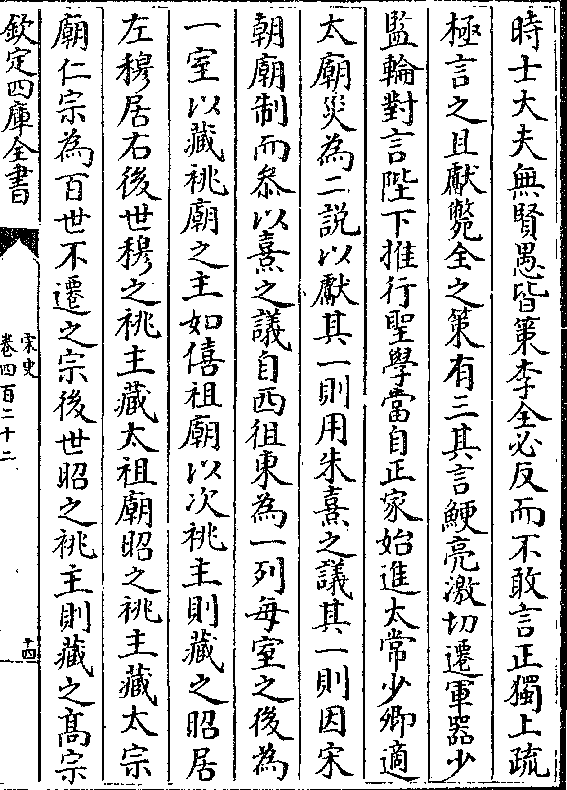 時士大夫無賢愚皆策李全必反而不敢言正獨上疏
極言之且獻斃全之策有三其言鯁亮激切遷軍器少
監輪對言陛下推行聖學當自正家始進太常少卿適
太廟災為二説以獻其一則用朱熹之議其一則因宋
朝廟制而叅以熹之議自西徂東為一列每室之後為
一室以藏祧廟之主如僖祖廟以次祧主則藏之昭居
左穆居右後世穆之祧主藏太祖廟昭之祧主藏太宗
廟仁宗為百世不遷之宗後世昭之祧主則藏之髙宗
欽定四庫全書
宋史
卷四百二十二
十四